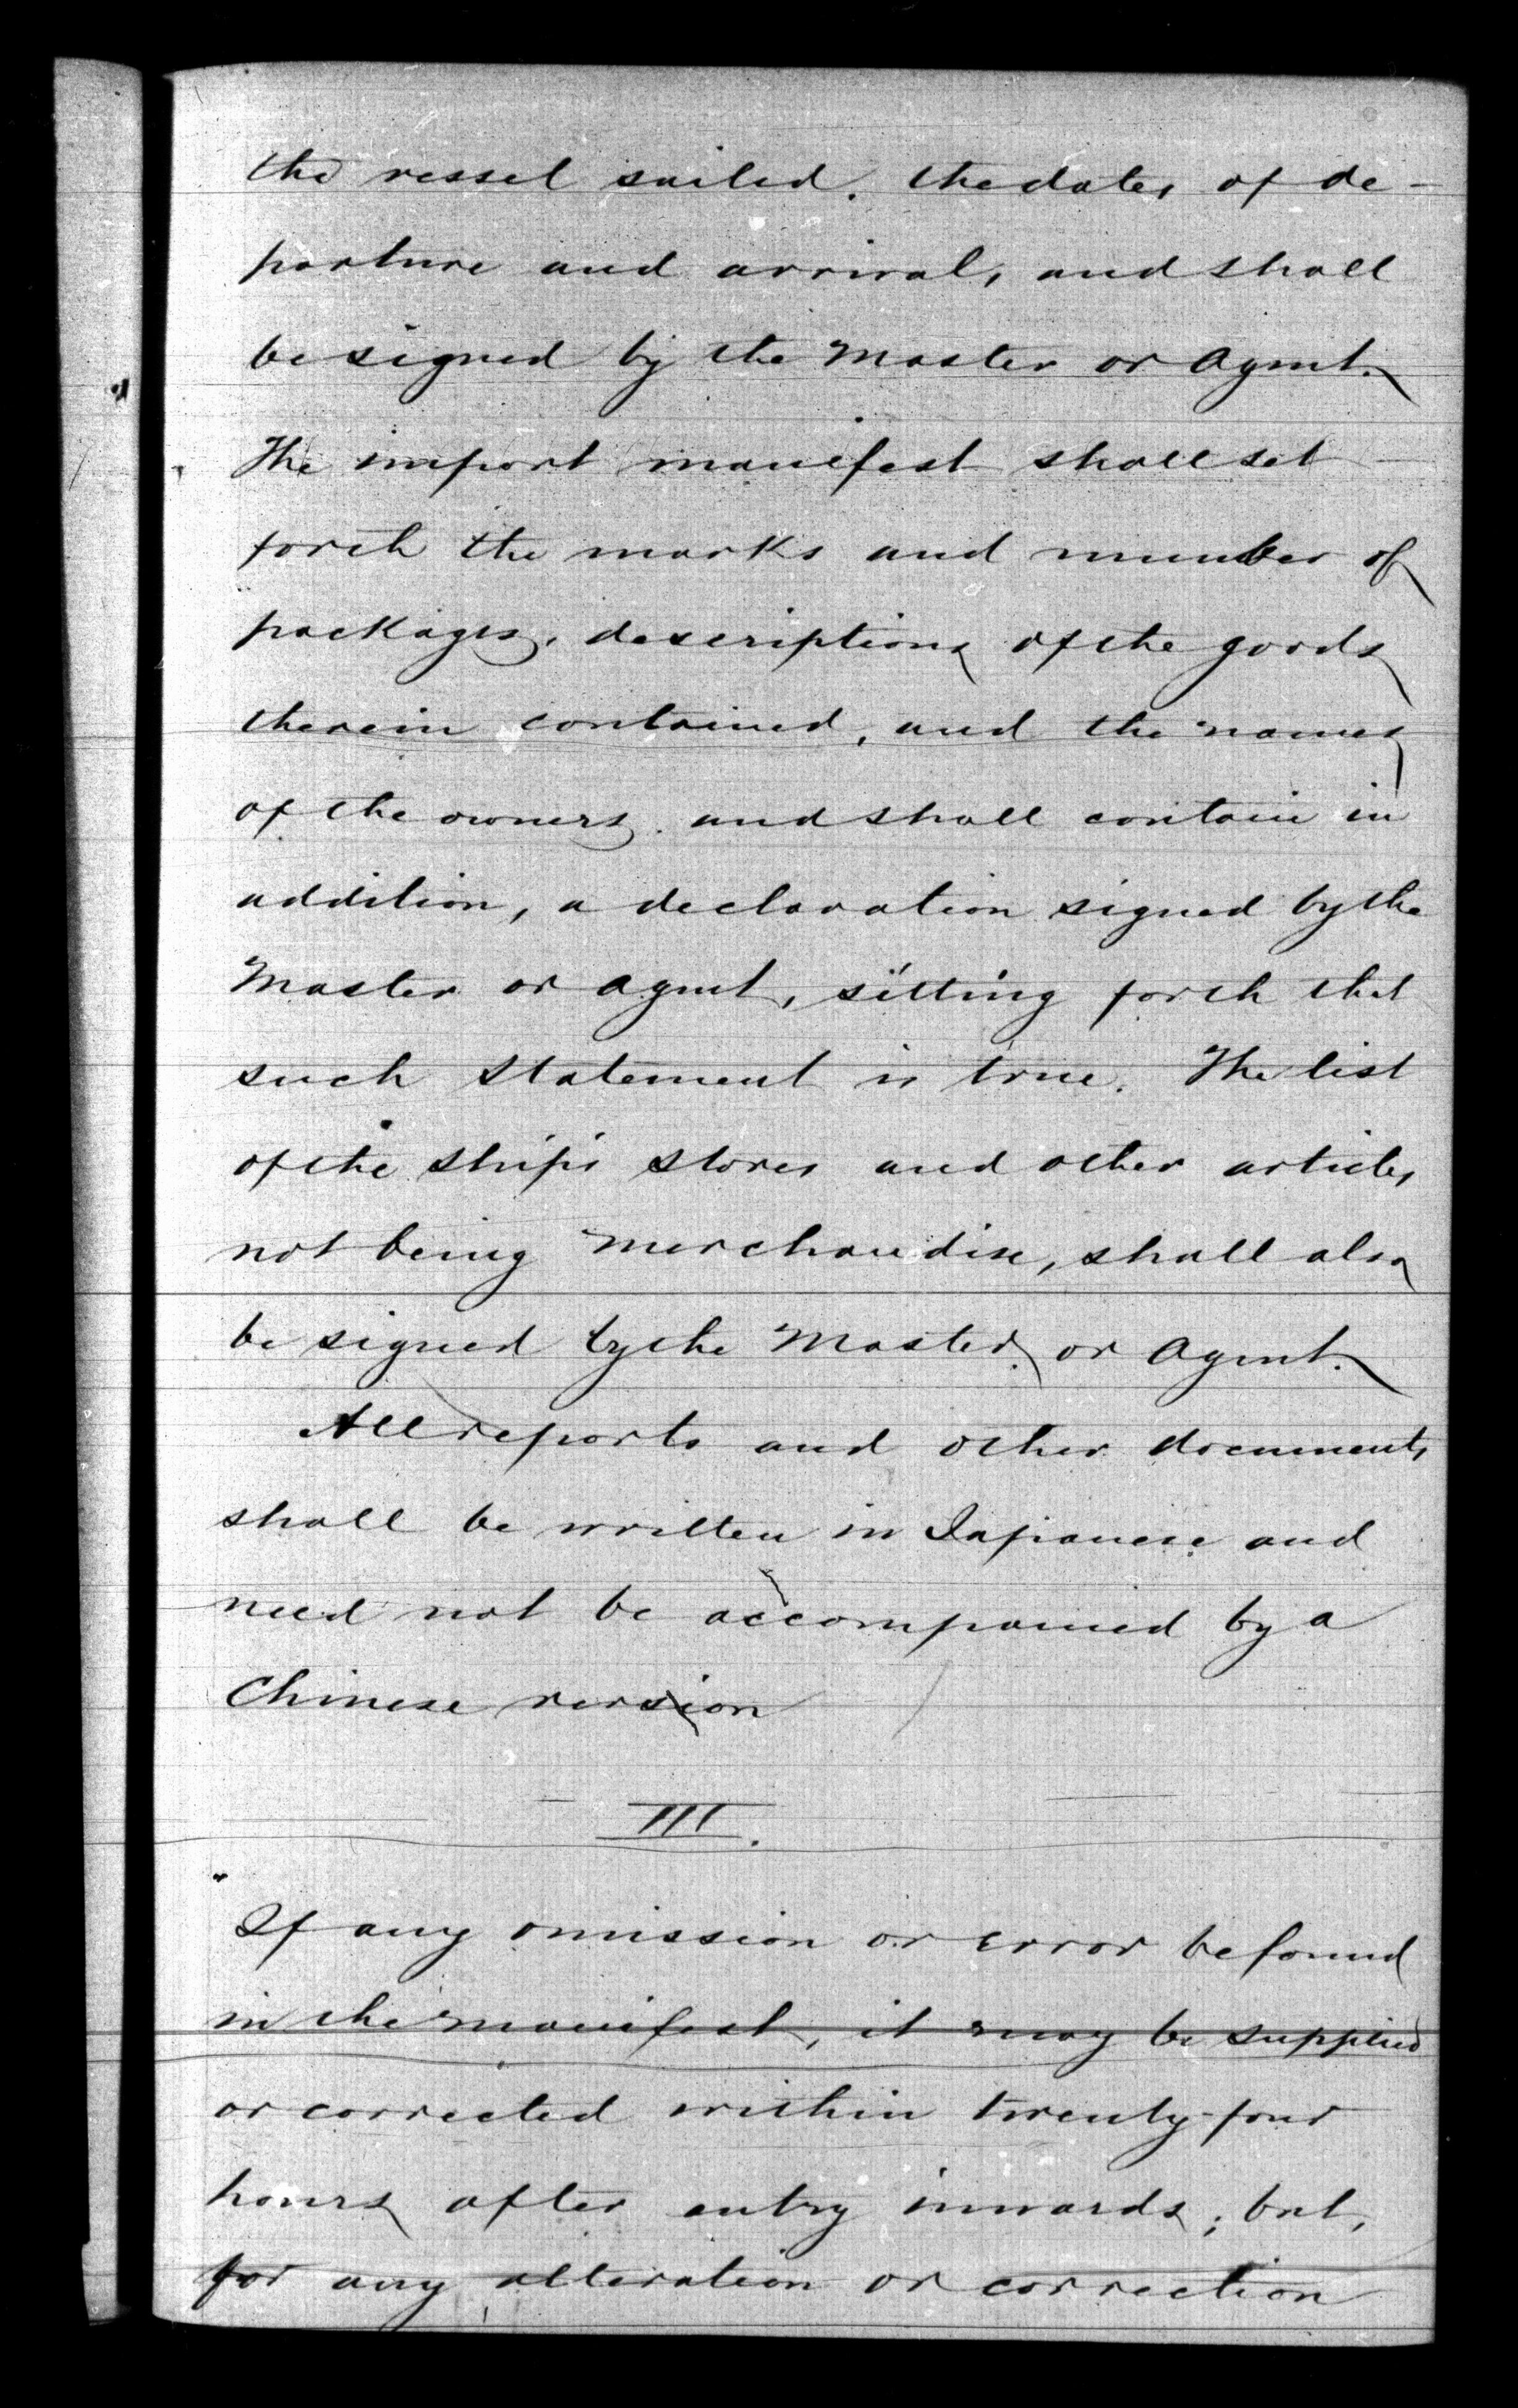 the vessel sailed. the dates of de-
parture and arrival, and shall
be signed by the Master or Agent.
The import manifest shall set
forth the marks and number of
packages, descriptions of the goods
therein contained, and the names
of the owners. and shall contain in
addition, a declaration signed by the
Master or Agent, setting forth that
such statement is true. The list
of the ship's stores and other articles
not being merchandise, shall also
be signed by the Master or Agent.
All reports and other documents
shall be written in Japanese and
need not be accompanied by a
Chinese version
III.
If any omission or error be found
in the manifest, it may be supplied
or corrected within twenty-four
hours after entry inwards; but,
for any alteration or correction